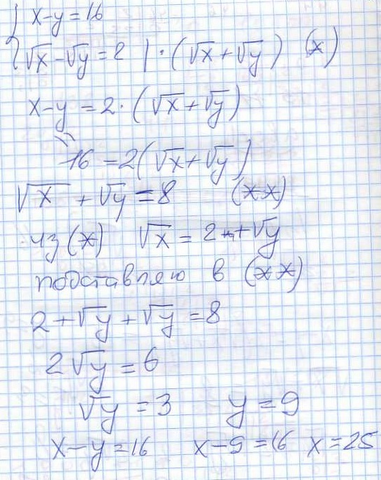 { x-y=16
√x-√y=2 | · (√x+√y) (x)
x-y=2·(√x+√y)
16=2(√x+√y)
√x+√y=8 (xx)
из (x) √x=2+√y
подставляю в (xx)
2+√y+√y=8
2√y=6
√y=3 y=9
x-y=16 x-9=16 x=25